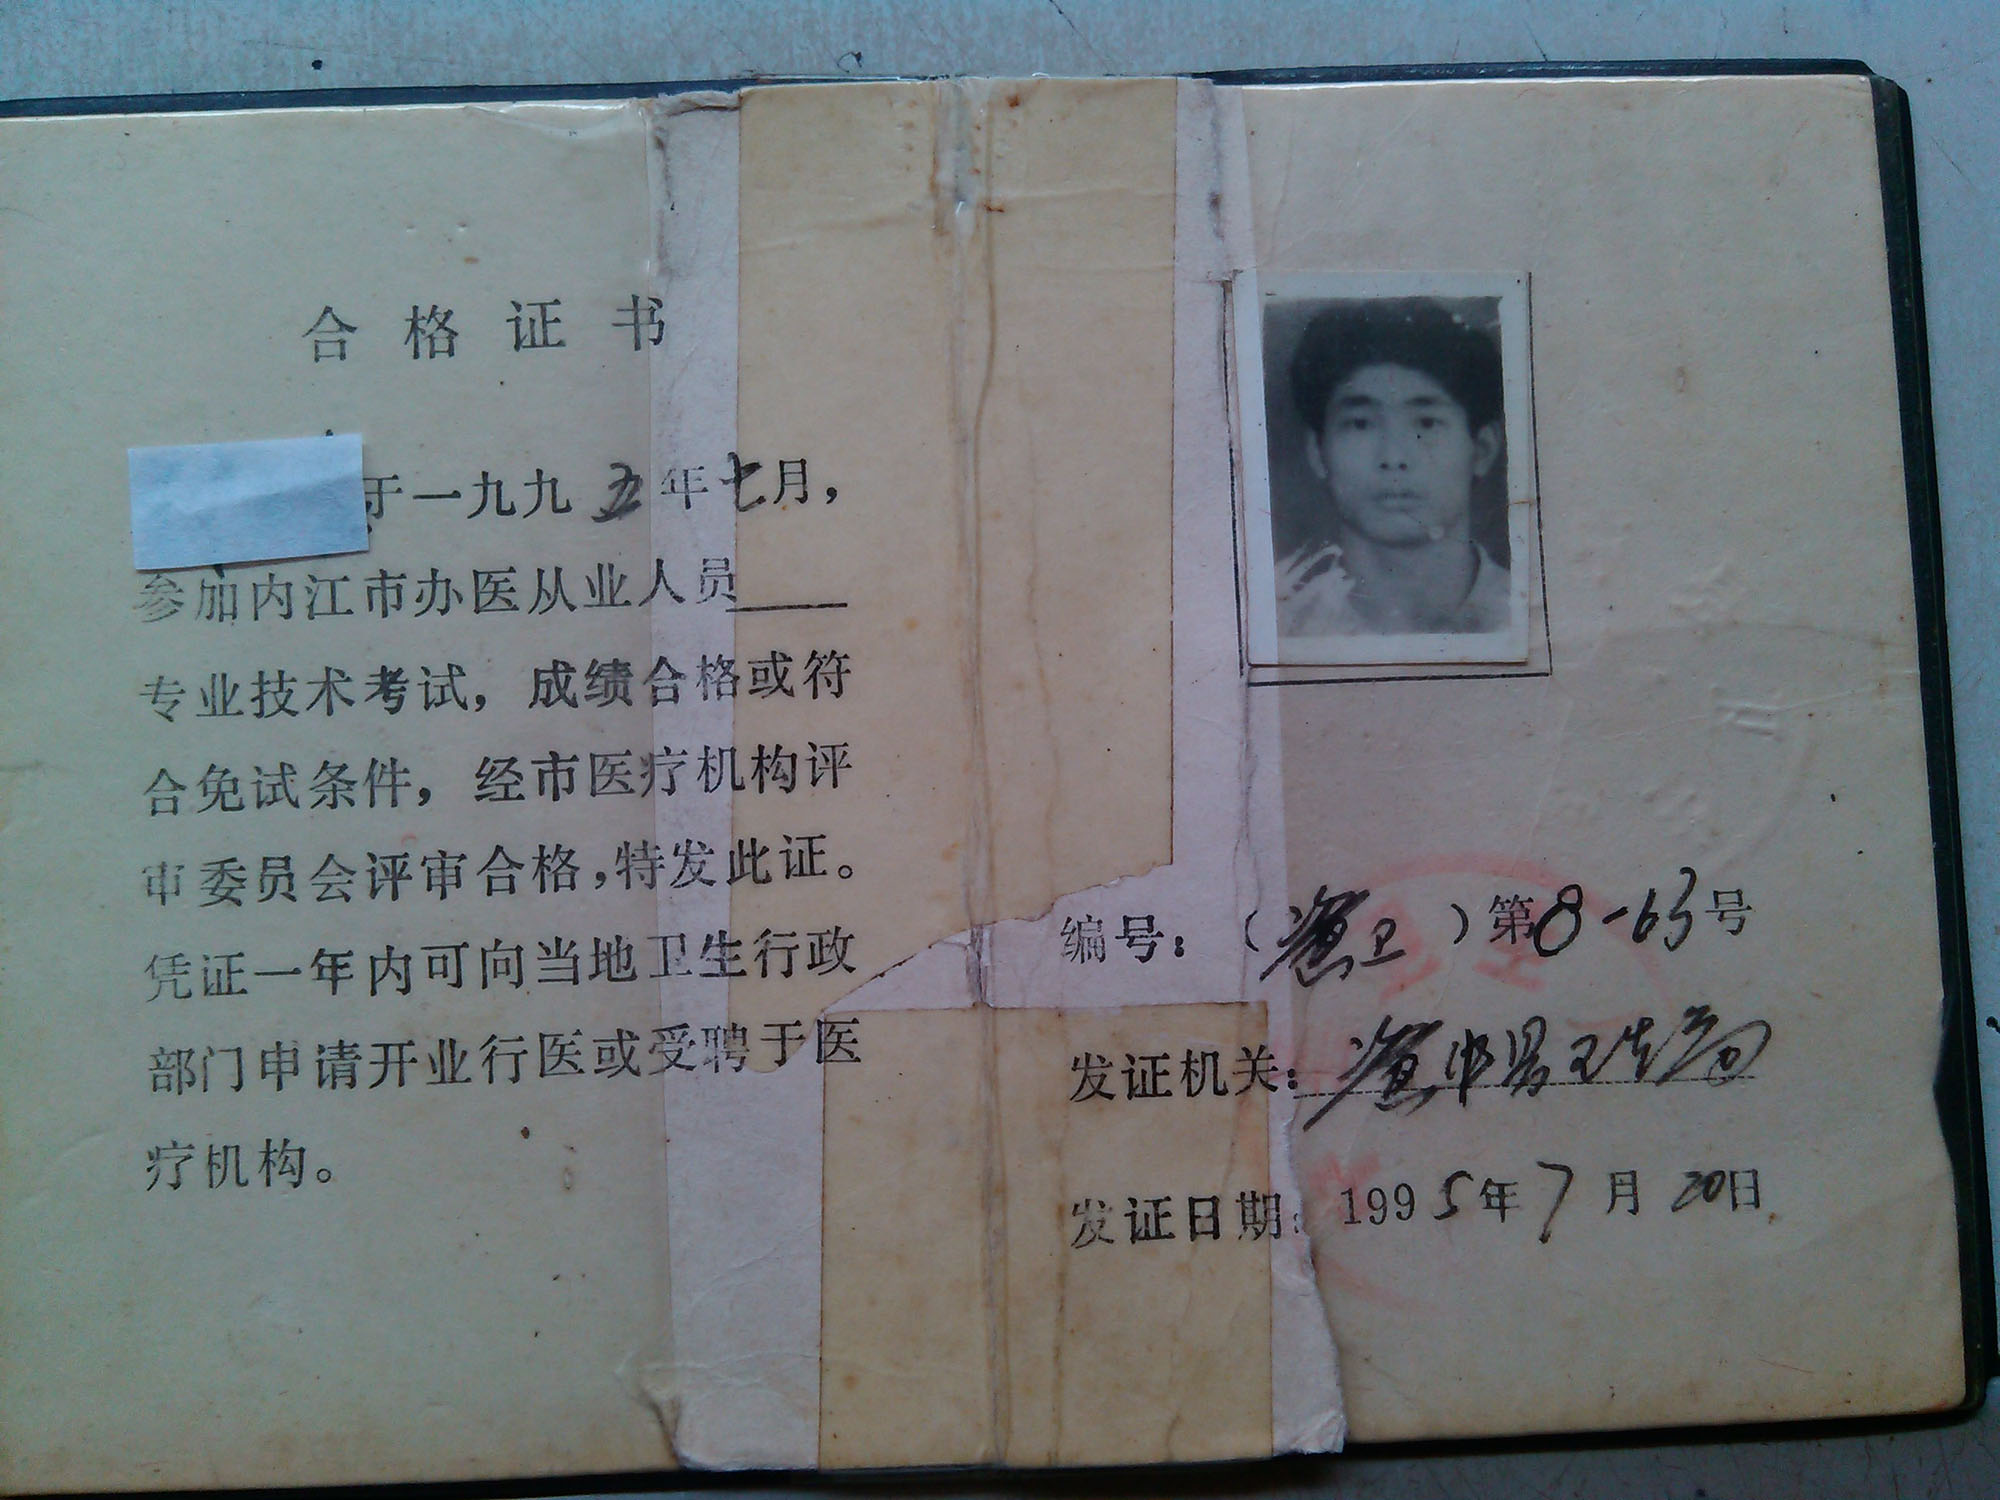 合格证书
于一九九五年七月，
参加内江市办医从业人员
专业技术考试，成绩合格或符
合免试条件，经市医疗机构评
审委员会评审合格，特发此证。
凭证一年内可向当地卫生行政
部门申请开业行医或受聘于医
疗机构。
编号：（资卫）第8-63号
发证机关：资中县卫生局
发证日期：1995年7月20日